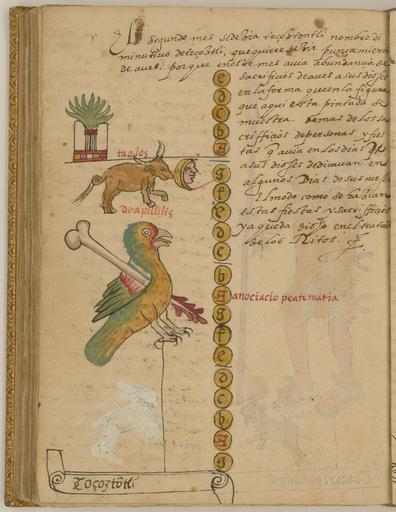 El Segundo mes se dezia toçoztontli nombre di
minutivo de toçoztli, que quiere dezir punçamiento
de aves. porque en este mes avia abundançia de
sacrifiçios de aves a sus dioses
en la forma que en la figura
que aqui esta pintada se
muestra. demas de los sa
crifiçios de personas y fies
tas q̃ avia en los dias q̃
a sus dioses dedicavan en
algunos Dias de sus meses
El modo como se hazian
estas fiestas y sacrifiçios
ya queda dicho en el tratado
de los Ritos.
e
d
c
b
A
g
f
e
d
c
b
A
g
f
e
d
c
b
A
g
taoros
de apillilis
anociacio
Toçoztõtli